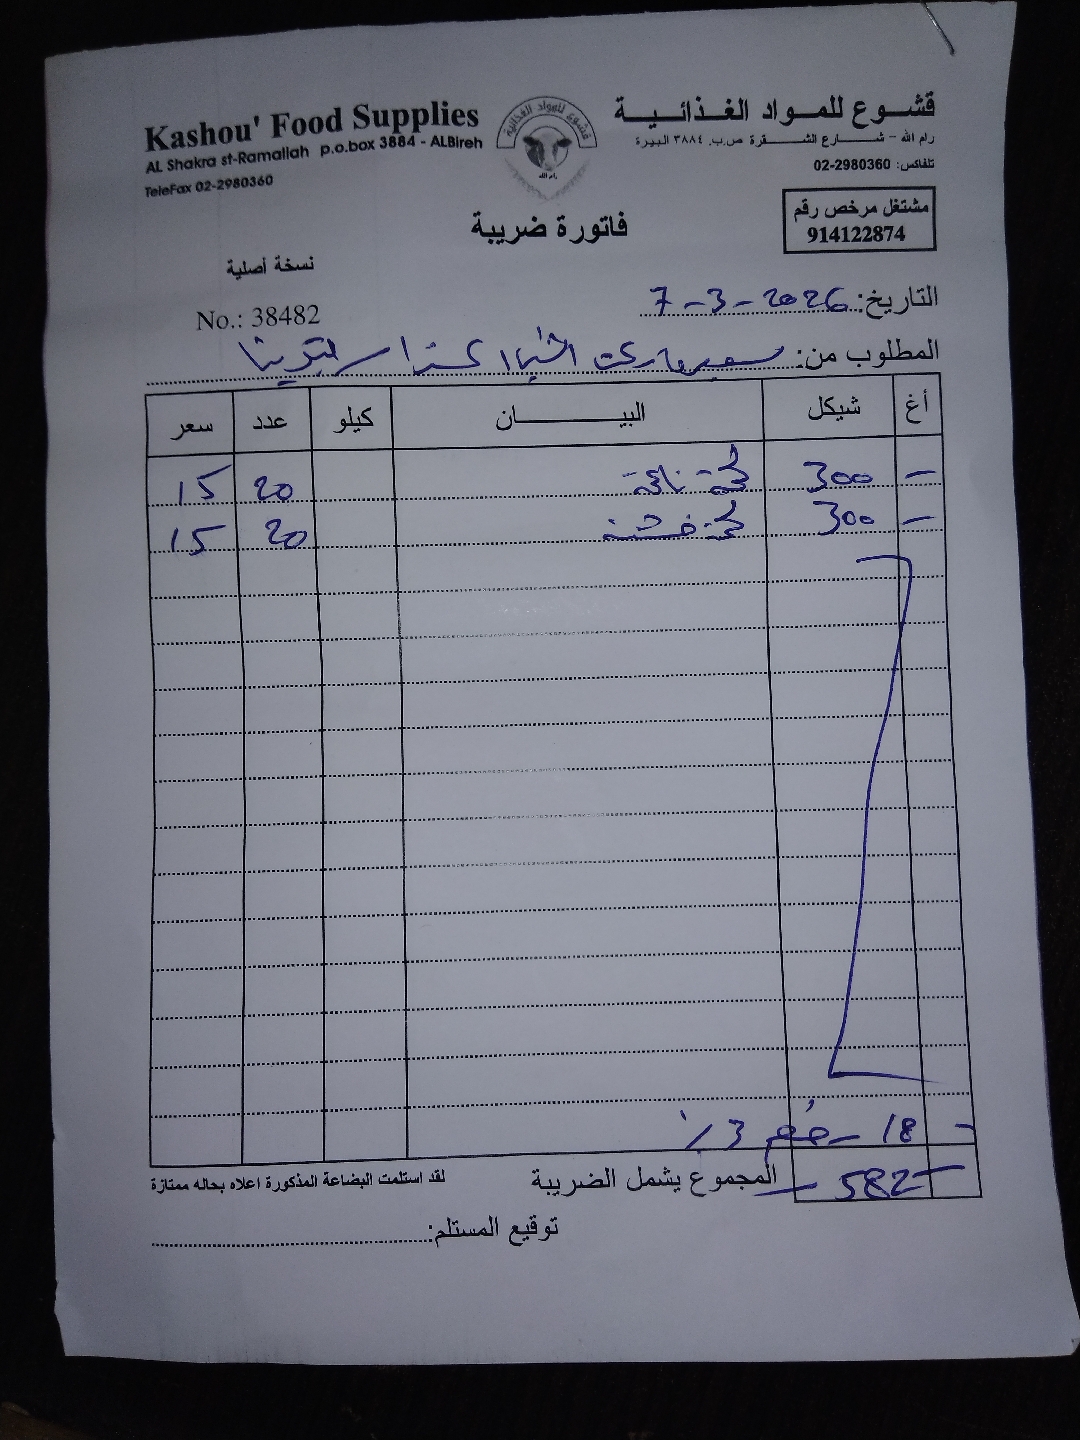 قشوع للمواد الغذائية
رام الله - شارع الشقرة ص.ب. ٣٨٨٤ البيرة
تلفاكس: 02-2980360
Kashou' Food Supplies
AL Shakra st-Ramallah p.o.box 3884 - ALBireh
TeleFax 02-2980360
قشوع للمواد الغذائية
رام الله
مشتغل مرخص رقم
914122874
فاتورة ضريبة
نسخة أصلية
No.: 38482
التاريخ: 7-3-2026
المطلوب من: سوبرماركت
أغ شيكل البيـــان كيلو عدد سعر
- 300 لحمة ناعمة 20 15
- 300 لحمة خشنة 20 15
- 18 خصم 3%
المجموع يشمل الضريبة 582 -
لقد استلمت البضاعة المذكورة اعلاه بحاله ممتازة
توقيع المستلم: